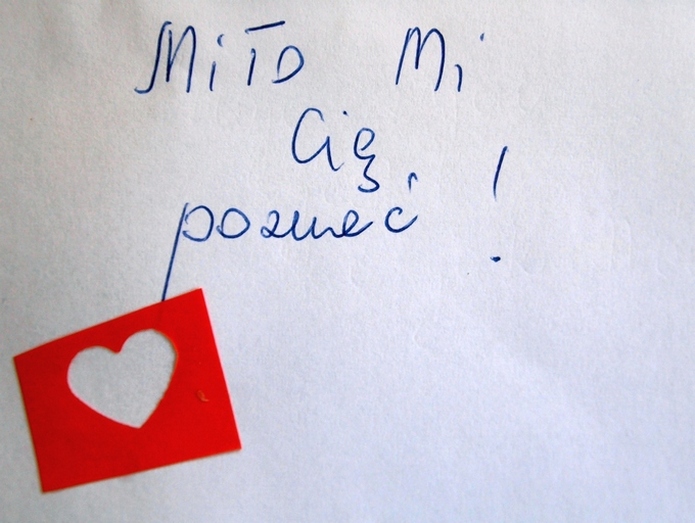 Miło Mi
Cię
poznać !